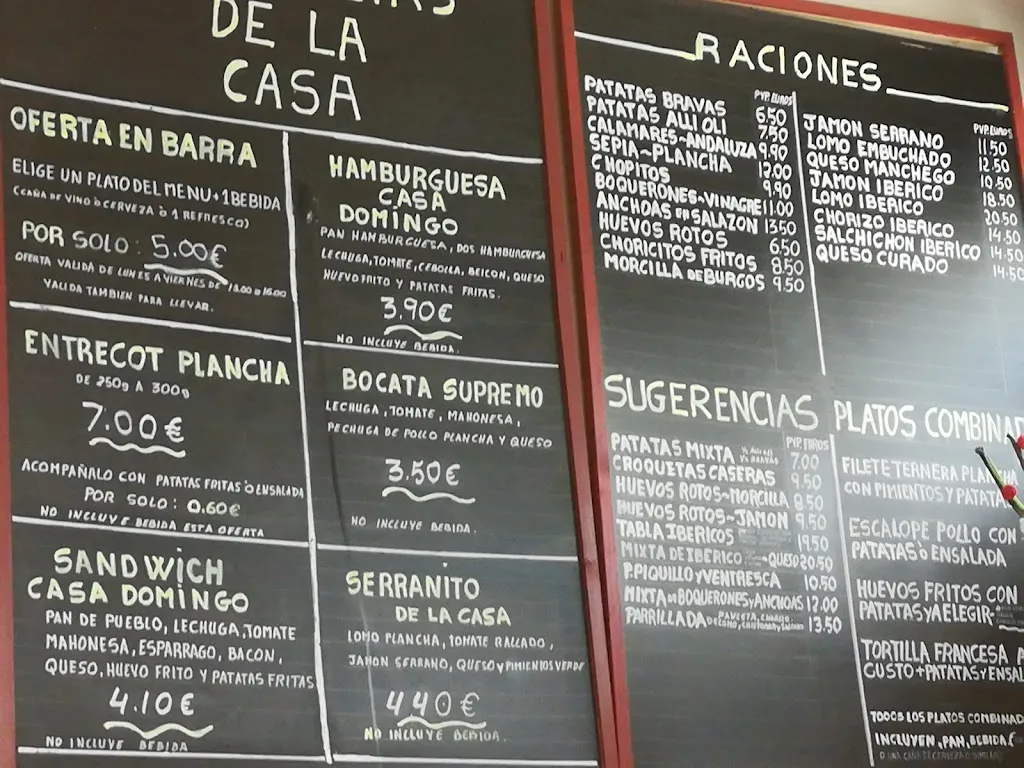 DE LA
CASA
OFERTA EN BARRA
ELIGE UN PLATO DEL MENU + 1 BEBIDA
(CAÑA DE VINO o CERVEZA ò 1 REFRESCO)
POR SOLO: 5.00€
OFERTA VALIDA DE LUNES A VIERNES DE 13.00 a 16.00
VALIDA TAMBIEN PARA LLEVAR.
ENTRECOT PLANCHA
DE 250g A 300g
7.00€
ACOMPAÑALO CON PATATAS FRITAS ò ENSALADA
POR SOLO: 0.60€
NO INCLUYE BEBIDA ESTA OFERTA
SANDWICH
CASA DOMINGO
PAN DE PUEBLO, LECHUGA, TOMATE
MAHONESA, ESPARRAGO, BACON,
QUESO, HUEVO FRITO Y PATATAS FRITAS
4.10€
NO INCLUYE BEBIDA
HAMBURGUESA
CASA
DOMINGO
PAN HAMBURGUESA, DOS HAMBURGUESA
LECHUGA, TOMATE, CEBOLLA, BEICON, QUESO
HUEVO FRITO Y PATATAS FRITAS.
3.90€
NO INCLUYE BEBIDA.
BOCATA SUPREMO
LECHUGA, TOMATE, MAHONESA,
PECHUGA DE POLLO PLANCHA Y QUESO
3.50€
NO INCLUYE BEBIDA.
SERRANITO
DE LA CASA
LOMO PLANCHA, TOMATE RALLADO,
JAMON SERRANO, QUESO Y PIMIENTOS VERDE
440€
NO INCLUYE BEBIDA.
RACIONES
PVP. EUROS
PATATAS BRAVAS 6.50
PATATAS ALLI OLI 7.50
CALAMARES~ANDALUZA 9.90
SEPIA~PLANCHA 12.00
CHOPITOS 9.90
BOQUERONES~VINAGRE 11.00
ANCHOAS EN SALAZON 13.50
HUEVOS ROTOS 6.50
CHORICITOS FRITOS 8.50
MORCILLA DE BURGOS 9.50
PVP. EUROS
JAMON SERRANO 11.50
LOMO EMBUCHADO 12.50
QUESO MANCHEGO 10.50
JAMON IBERICO 18.50
LOMO IBERICO 20.50
CHORIZO IBERICO 14.50
SALCHICHON IBERICO 14.50
QUESO CURADO 14.50
SUGERENCIAS
PVP. EUROS
PATATAS MIXTA 7.00
CROQUETAS CASERAS 9.50
HUEVOS ROTOS~MORCILLA 8.50
HUEVOS ROTOS~JAMON 9.50
TABLA IBERICOS 19.50
MIXTA DE IBERICO QUESO 20.50
P. PIQUILLO Y VENTRESCA 10.50
MIXTA DE BOQUERONES Y ANCHOAS 12.00
PARRILLADA 13.50
PLATOS COMBINAD
FILETE TERNERA PLANCHA
CON PIMIENTOS Y PATATA
ESCALOPE POLLO CON
PATATAS ò ENSALADA
HUEVOS FRITOS CON
PATATAS Y A ELEGIR
TORTILLA FRANCESA A
GUSTO + PATATAS Y ENSAL
TODOS LOS PLATOS COMBINAD
INCLUYEN, PAN, BEBIDA